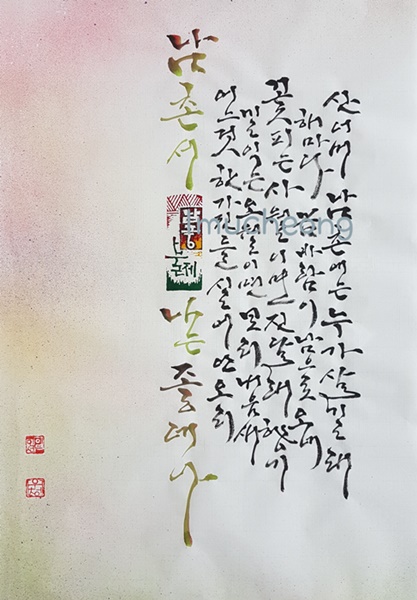 산너머 남촌에는 누가 살길래
해마다 봄바람이 남으로 오네
꽃피는 사월이면 진달래 향기
밀익는 오월이면 보리 내음새
어느것 한가진들 실어 안오리
남촌서 남풍 불제 나는 좋데나
mucheong